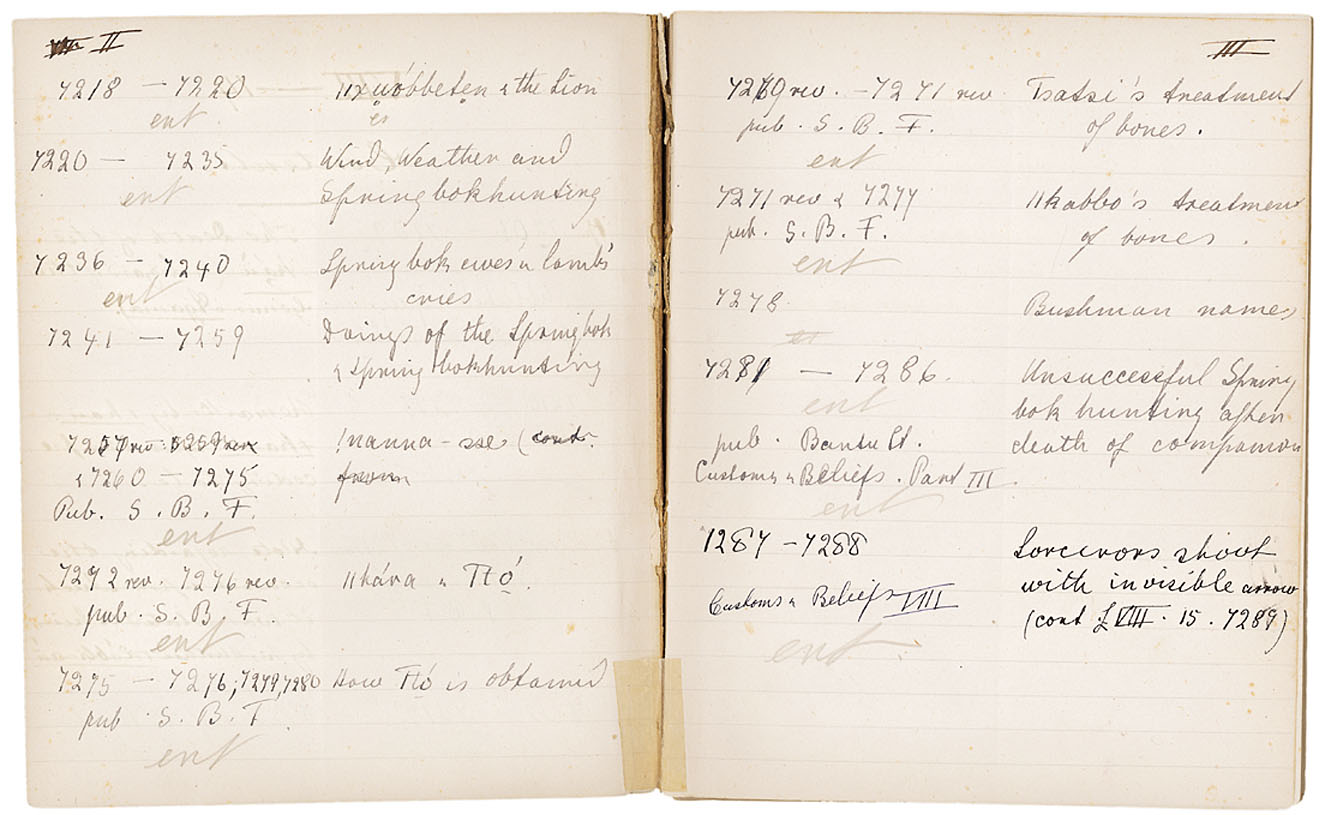 II
7218 — 7220 ǁxuobbeten & the Lion
ent
7220 — 7235 Wind, Weather and
ent Springbokhunting
7236 — 7240 Springbok ewes & lambs
ent cries
7241 — 7259 Doings of the Springbok
& Springbokhunting
7257 rev. 5259 rev !nanna-sse (cont.
& 7260 — 7275 from
Pub. S. B. F.
ent
7272 rev. 7276 rev. ǁhára & Ttó.
pub. S. B. F.
ent
7275 — 7276; 7279, 7280 How Ttó is obtained
pub. S. B. F
ent
III
7269 rev. — 7271 rev Tsatsi's treatment
pub. S. B. F. of bones.
ent
7271 rev & 7277 ǁkabbo's treatment
pub. S. B. F. of bones.
ent
7278 Bushman names
7281 — 7286. Unsuccessful Spring
ent bok hunting after
pub. Bantu St. death of companion
Customs & Beliefs. Part III.
ent
1287 — 7288 Sorcerors shoot
with invisible arrow
Customs & Beliefs VIII (cont L VIII. 15. 7289)
ent